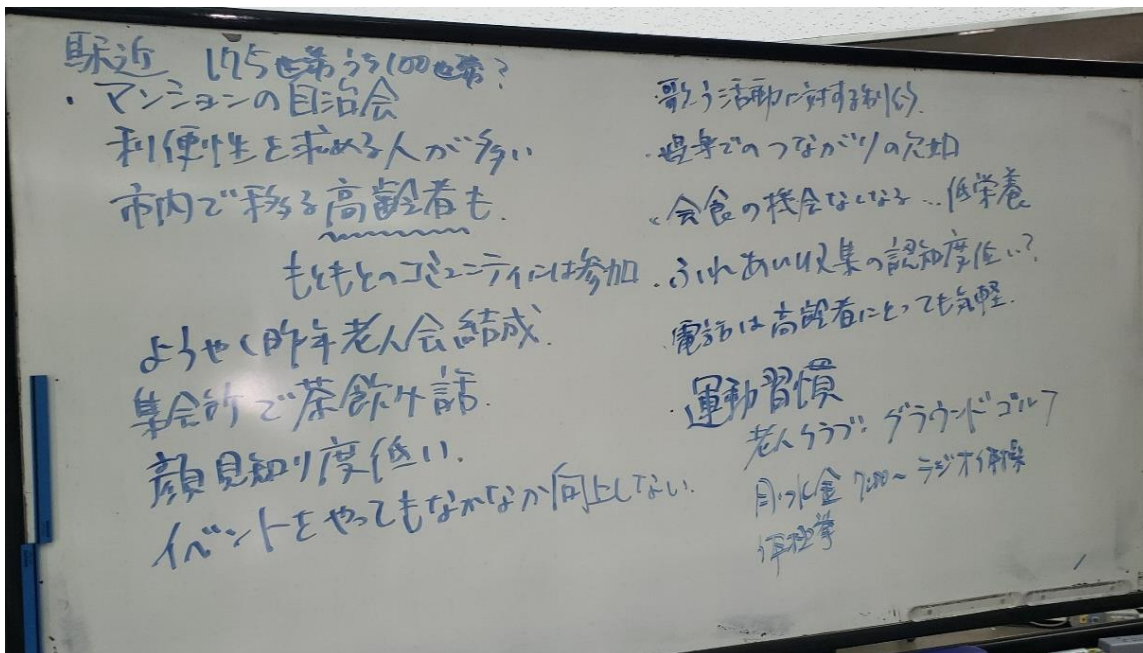 駅近 175世帯うち100世帯?
・マンションの自治会
利便性を求める人が多い
市内で移る高齢者も.
もともとのコミュニティには参加
ようやく昨年老人会結成.
集会所で茶飲み話.
顔見知り度低い.
イベントをやってもなかなか向上しない.
・歌う活動に対する制約.
・見学でのつながりの欠如
・会食の機会なくなる…低栄養
・ふれあい収集の認知度低い?
・電話は高齢者にとっても気軽.
・運動習慣
老人クラブ: グラウンドゴルフ
月・水・金 7:00〜ラジオ体操